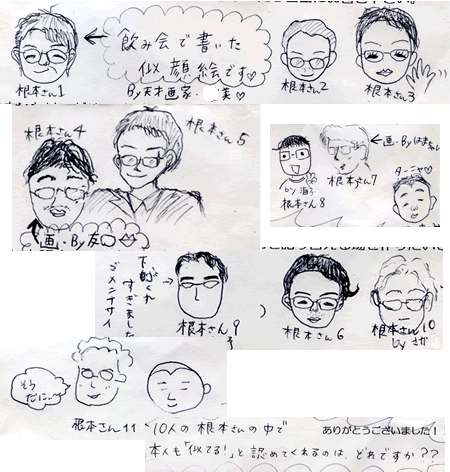 飲み会で書いた
似顔絵です♡
By天才画家・
根本さん1
根本さん2
根本さん3
根本さん4
根本さん5
画・By友
画・By
タニャ♡
根本さん7
根本さん8
下ぶくれ
すぎました
ゴメンナサイ
根本さん9
根本さん6
根本さん10
by さか
そう
だに…
根本さん11
10人の根本さんの中で
ありがとうございました!
本人も「似てる!」と認めてくれるのは、どれですか??